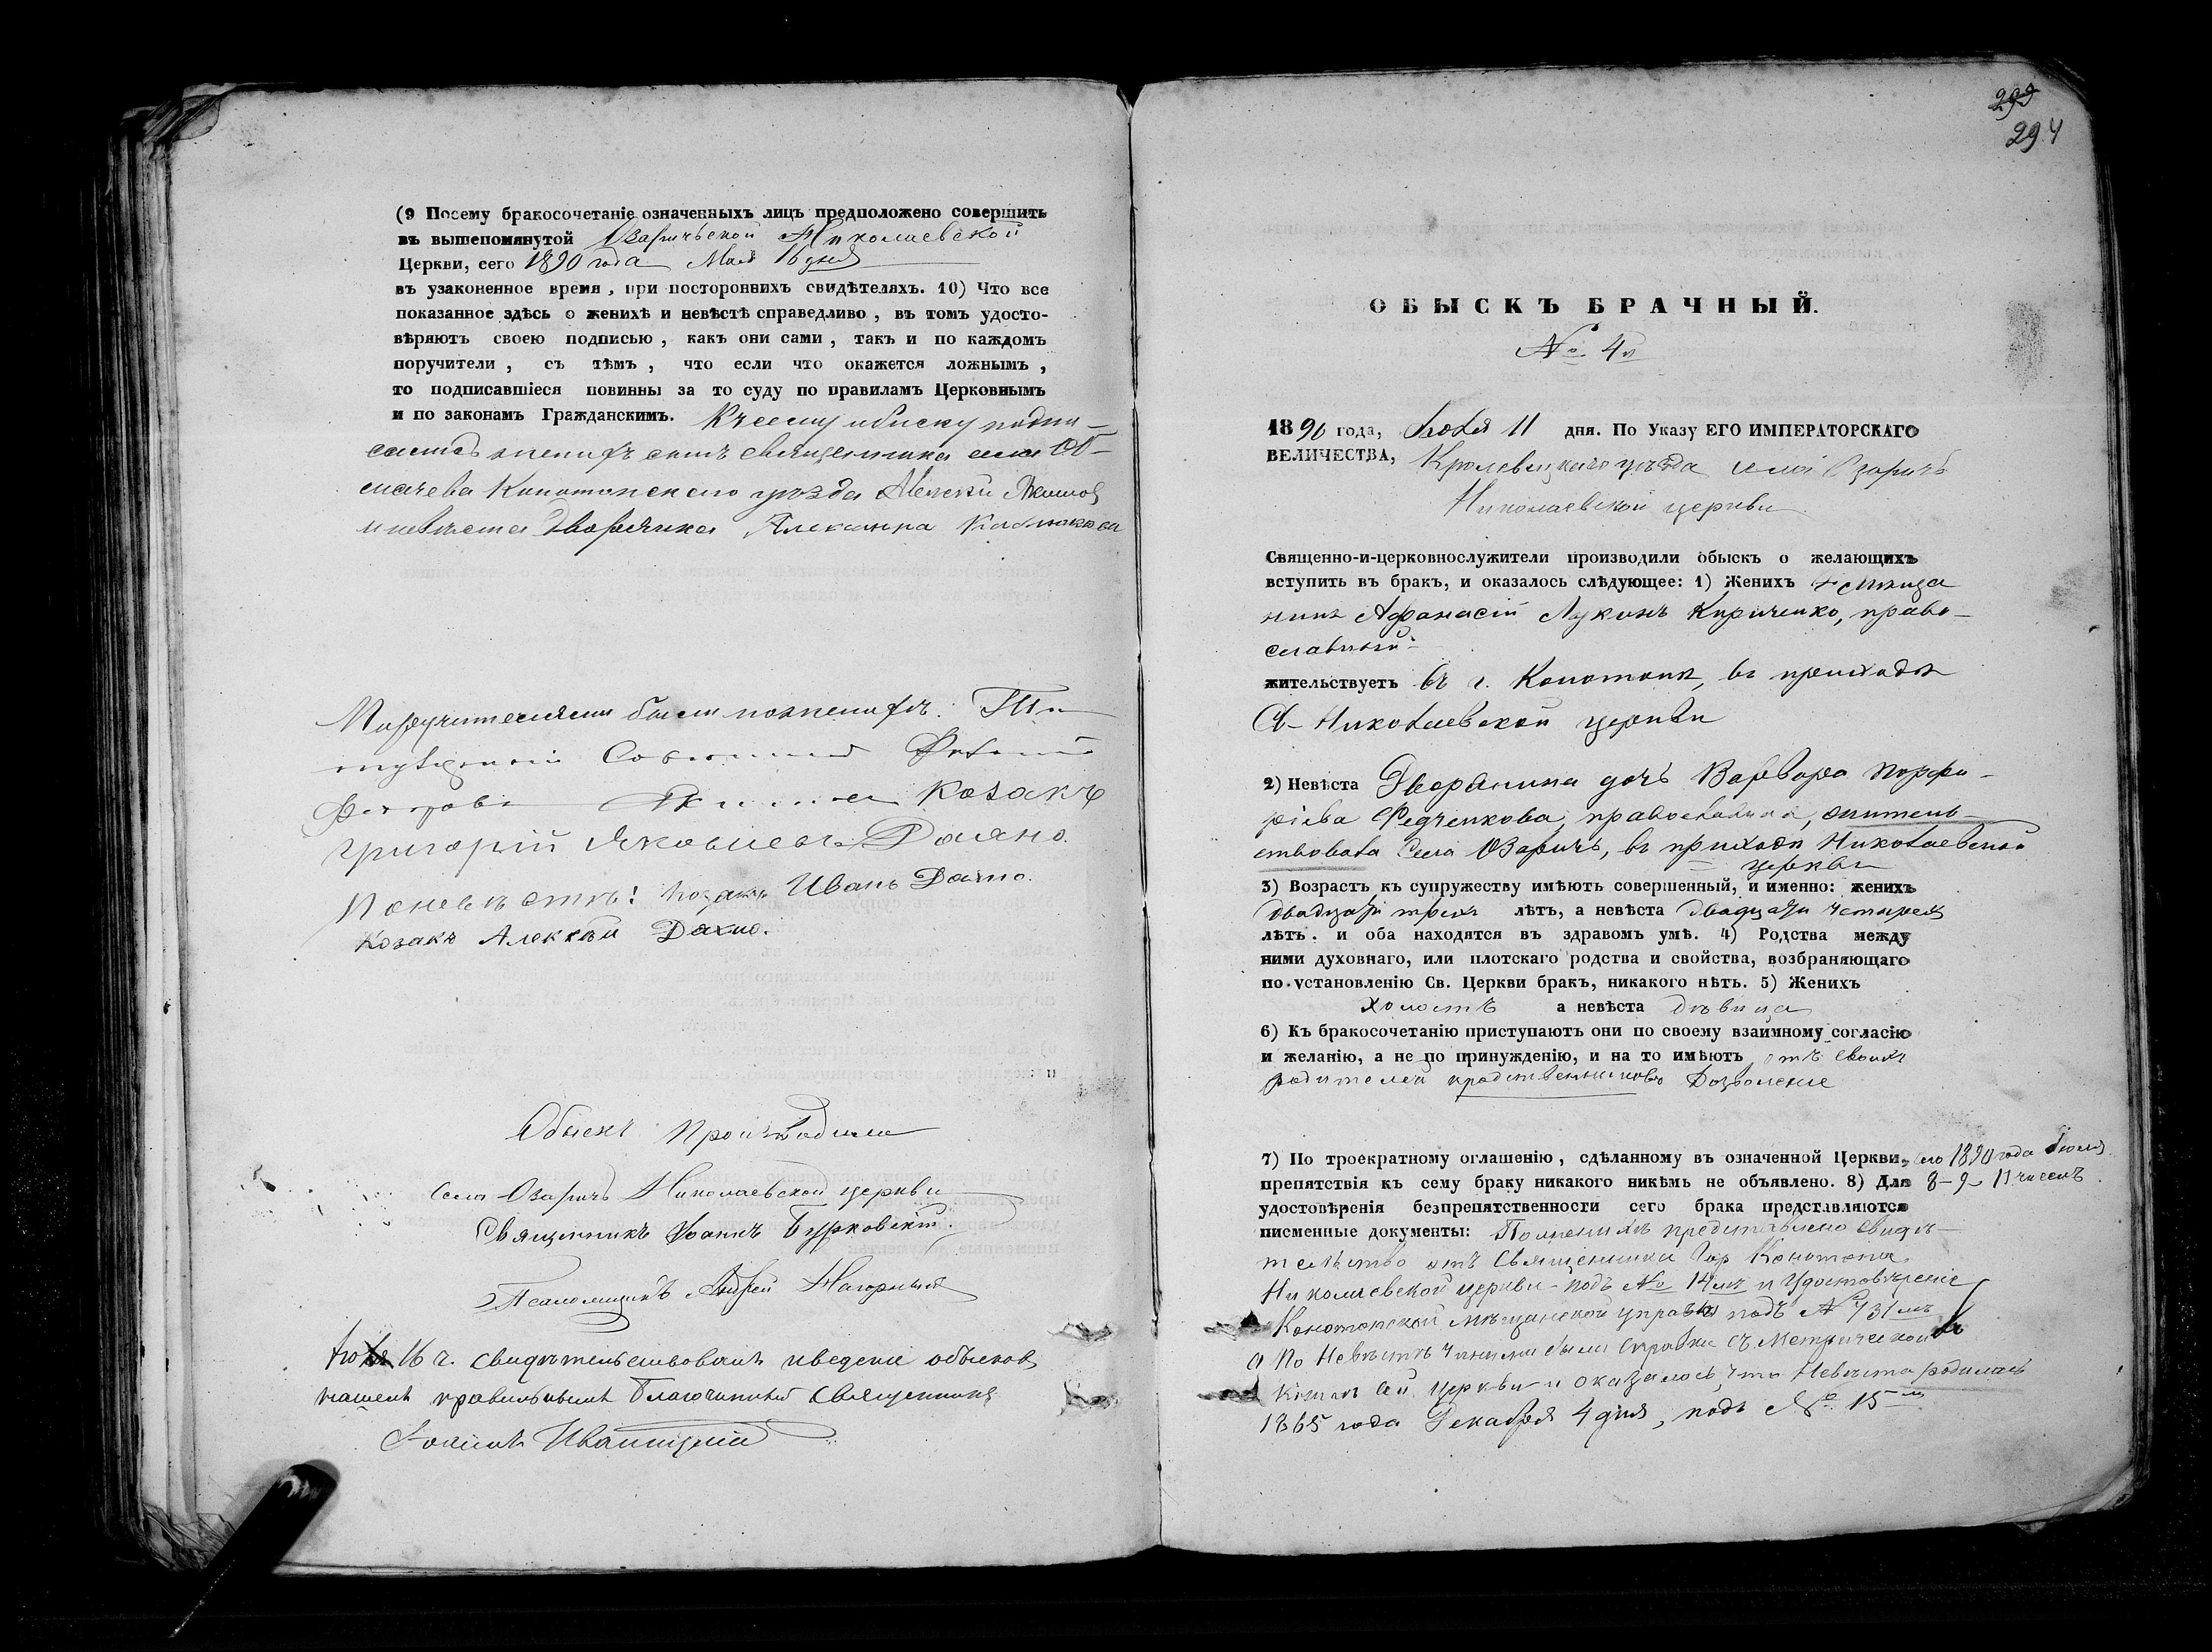 (9 Посему бракосочетаніе означенныхъ лицъ предположено совершить
въ вышепомянутой Озаричьской Николаевской
Церкви, сего 1890 года Мая 16 дня
въ узаконенное время, при постороннихъ свидѣтеляхъ. 10) Что все
показанное здѣсь о женихѣ и невѣстѣ справедливо, въ томъ удосто-
вѣряютъ своею подписью, какъ они сами, такъ и по каждомъ
поручители, съ тѣмъ, что если что окажется ложнымъ,
то подписавшіеся повинны за то суду по правиламъ Церковнымъ
и по законамъ Гражданскимъ. Къ сему обыску подпи-
женихъ сынъ священника села
Конотопскаго уѣзда
и невѣста дворянка
Поручителями были по женихѣ:
Козакъ
Григорій Яковлевъ
По невѣстѣ: Козакъ Иванъ Дахно.
Козакъ Алексѣй Дахно.
Обыскъ производили
Села Озаричъ Николаевской церкви
Священникъ Іоаннъ Бурковскій.
Псаломщикъ Андрей Нагорный
16 ч. свидѣтельствовалъ и веденіе обысковъ
нашелъ правильнымъ Благочинный Священникъ
Іоаннъ
293
294
ОБЫСКЪ БРАЧНЫЙ.
№ 4й
1890 года, Іюля 11 дня. По Указу ЕГО ИМПЕРАТОРСКАГО
ВЕЛИЧЕСТВА, Кролевецкаго уѣзда села Озаричъ
Николаевской церкви
Священно-и-церковнослужители производили обыскъ о желающихъ
вступить въ бракъ, и оказалось слѣдующее: 1) Женихъ Мѣща
нинъ Афанасій Лукинъ Кириченко, право-
славный
жительствуетъ въ г. Конотопѣ, въ приходѣ
Св-Николаевской церкви
2) Невѣста Дворянина дочь Варвара Порфи-
ріева Федченкова, православная, жительс-
твовала Села Озаричъ, въ приходѣ Николаевской
церкви
3) Возрастъ къ супружеству имѣютъ совершенный, и именно: женихъ
двадцати трехъ лѣтъ, а невѣста двадцати четырехъ
лѣтъ. и оба находятся въ здравомъ умѣ. 4) Родства между
ними духовнаго, или плотскаго родства и свойства, возбраняющаго
по установленію Св. Церкви бракъ, никакого нѣтъ. 5) Женихъ
холостъ а невѣста дѣвица
6) Къ бракосочетанію приступаютъ они по своему взаимному согласію
и желанію, а не по принужденію, и на то имѣютъ отъ своихъ
родителей и родственниковъ дозволеніе
7) По троекратному оглашенію, сдѣланному въ означенной Церкви, сего 1890 года Іюля
препятствія къ сему браку никакого никѣмъ не объявлено. 8) Для 8-9-11 чиселъ
удостовѣренія безпрепятственности сего брака представляются
писменные документы: По женихѣ представлено свидѣ-
тельство отъ Священника Гор Конотопа
Николаевской церкви подъ № 14мъ и Удостовѣреніе
Конотопской мѣщанской управы подъ № 731мъ
а По Невѣстѣ чинены были справки съ Метрической
церкви и оказалось, что Невѣста родилась
1865 года Декабря 4 дня, подъ № 15